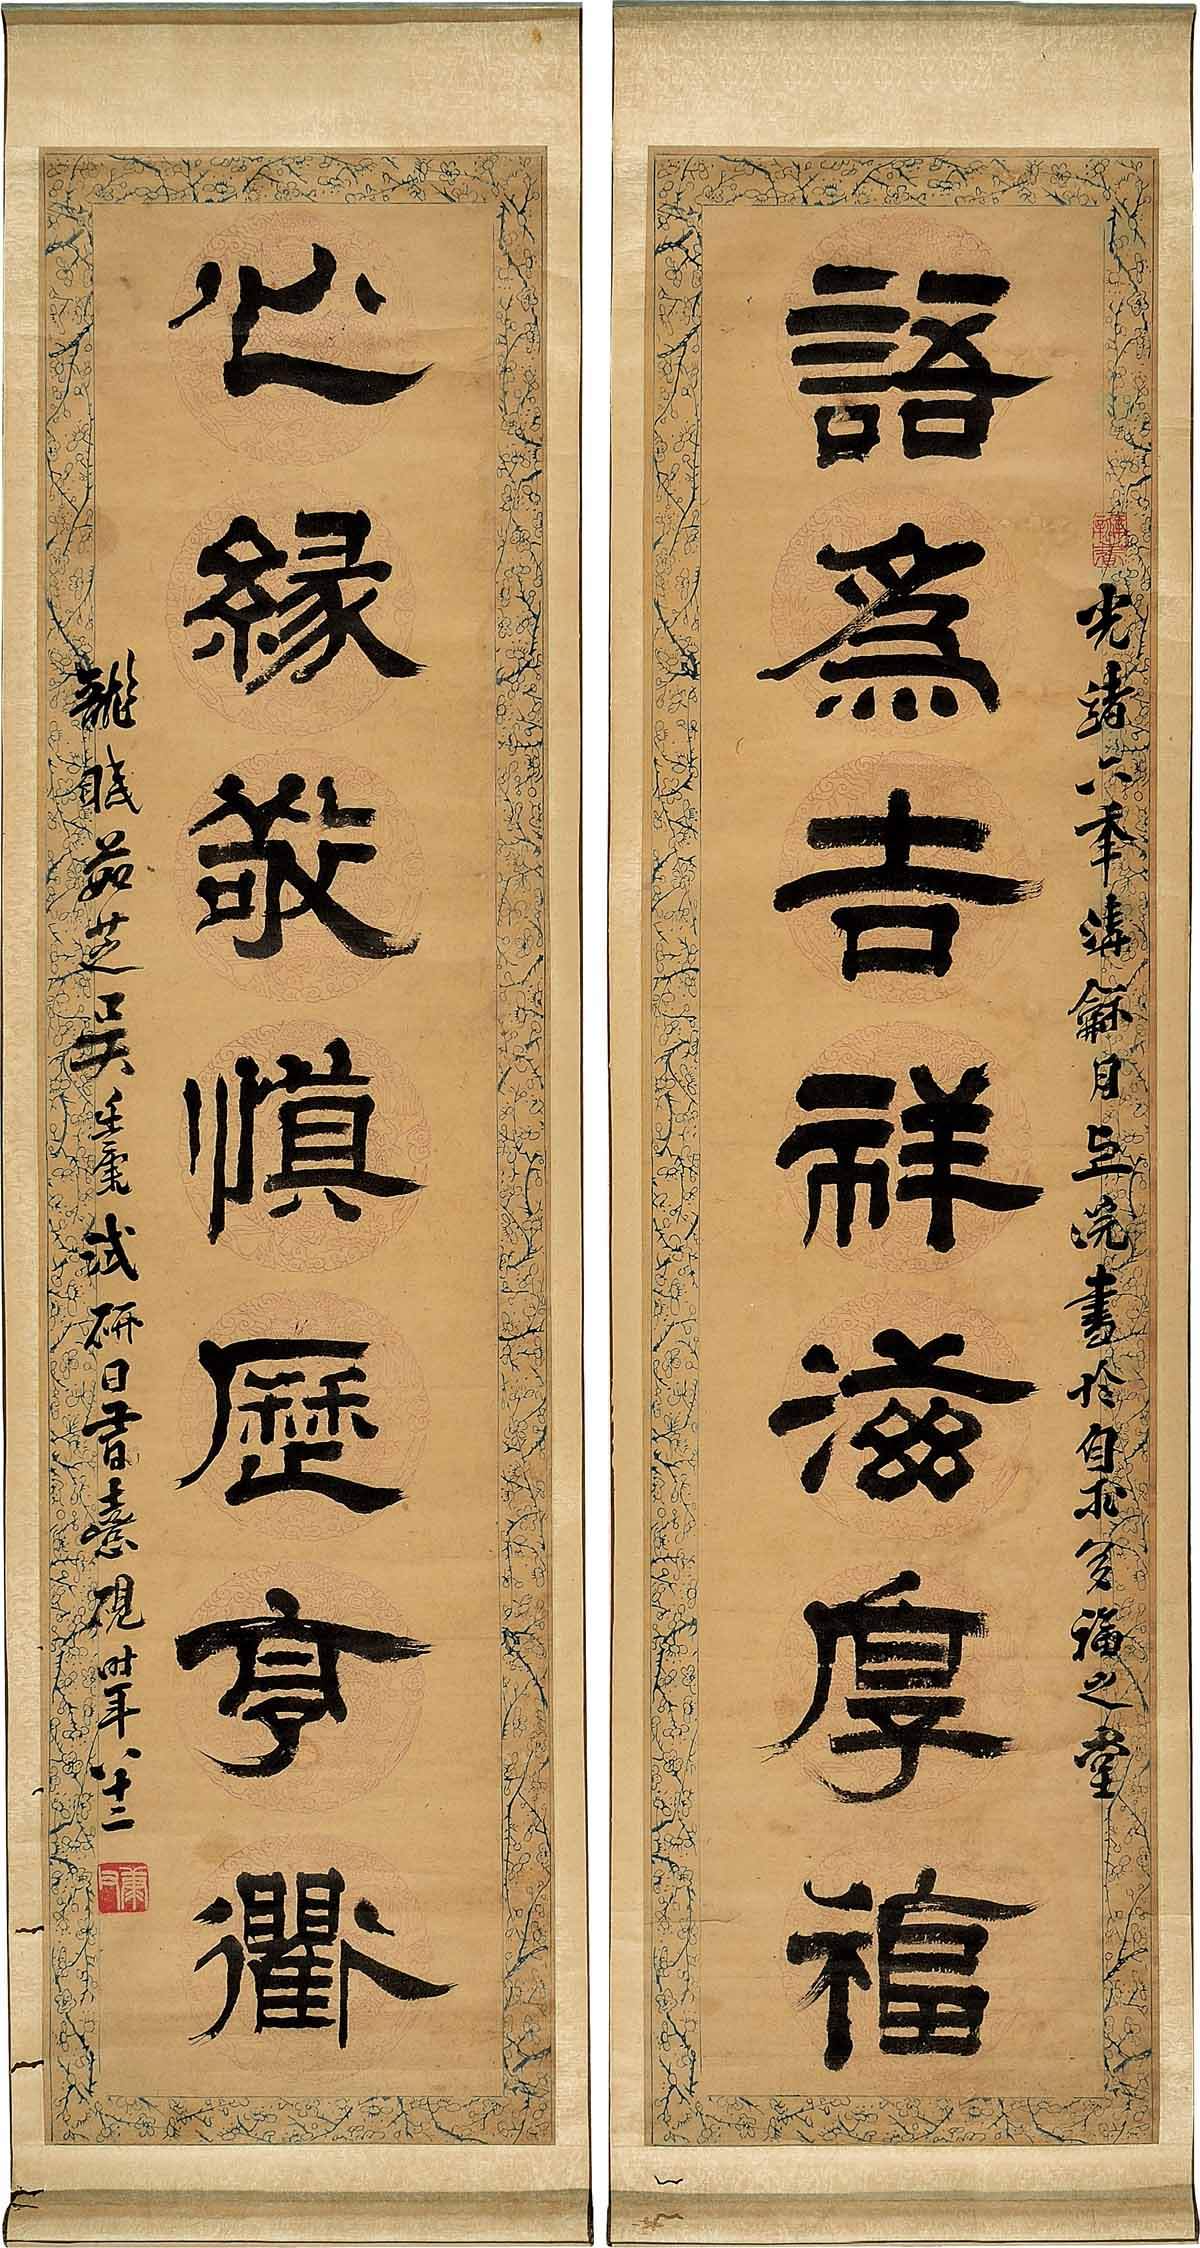 語爲吉祥滋厚福
光緒六年清龢月上浣書於自求多福之堂
心緣敬慎歷亨衢
龍眠茹芝吳
試研
時年八十二